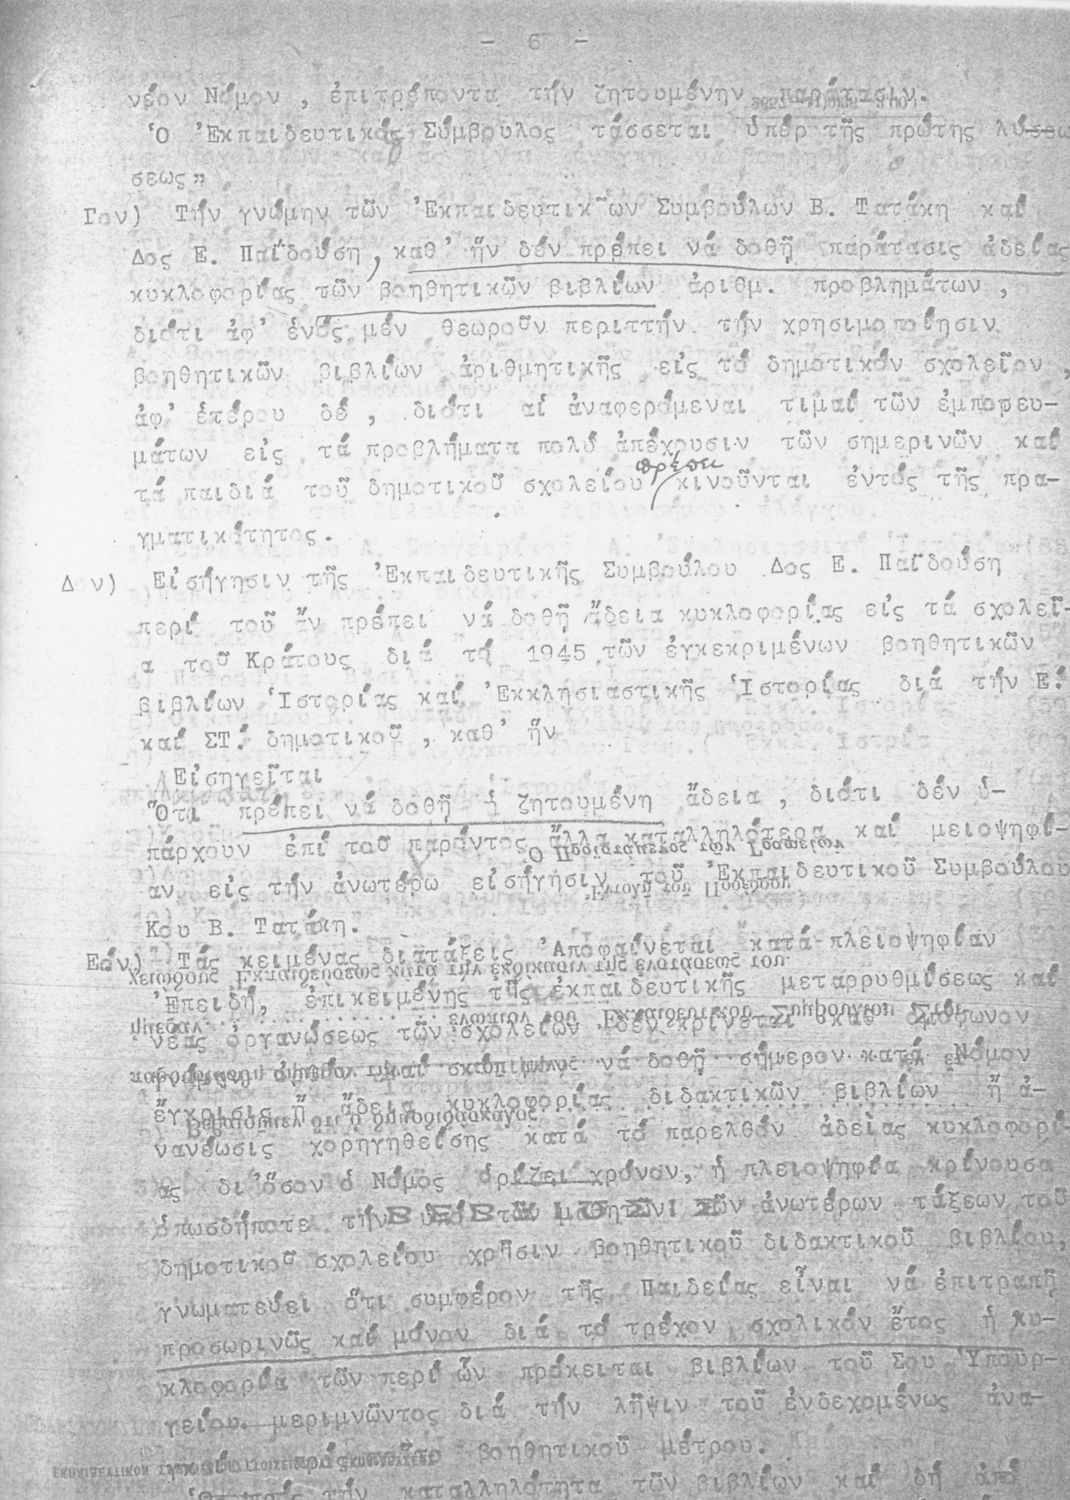 - 6 -
νέον Νόμον , ἐπιτρέποντα τήν ζητουμένην παράτασιν.
Ὁ Ἐκπαιδευτικός Σύμβουλος τάσσεται ὑπέρ τῆς πρώτης λύσεω
σεως"
Γον) Τήν γνώμην τῶν Ἐκπαιδευτικ῀ων Συμβούλων Β. Τατάκη καί
Δος Ε. Παϊδούση , καθ' ἥν δέν πρέπει νά δοθῇ παράτασις ἀδείας
κυκλοφορίας τῶν βοηθητικῶν βιβλίων ἀριθμ. προβλημάτων ,
διότι ἀφ' ἑνός μέν θεωροῦν περιττήν τήν χρησιμοποίησιν
βοηθητικῶν βιβλίων ἀριθμητικῆς εἰς τό δημοτικόν σχολεῖον ,
ἀφ' ἑτέρου δέ , διότι αἱ ἀναφερόμεναι τιμαί τῶν ἐμπορευ-
μάτων εἰς τά προβλήματα πολύ ἀπέχουσιν τῶν σημερινῶν καί
τά παιδιά τοῦ δημοτικοῦ σχολείου πρέπει κινοῦνται ἐντός τῆς πρα-
γματικότητος.
Δον) Εἰσήγησιν τῆς Ἐκπαιδευτικῆς Συμβούλου Δος Ε. Παϊδούση
περί τοῦ ἄν πρέπει νά δοθῇ ἄδεια κυκλοφορίας εἰς τά σχολεῖ-
α τοῦ Κράτους διά τό 1945 τῶν ἐγκεκριμένων βοηθητικῶν
βιβλίων Ἱστορίας καί Ἐκκλησιαστικῆς Ἱστορίας διά τήν Ε.
καί ΣΤ. δημοτικοῦ , καθ' ἥν
Εἰσηγεῖται
Ὅτι πρέπει νά δοθῇ ἡ ζητουμένη ἄδεια , διότι δέν ὑ-
πάρχουν ἐπί τοῦ παρόντος ἄλλα καταλληλότερα καί μειοψηφί-
αν εἰς τήν ἀνωτέρω εἰσήγησιν τοῦ Ἐκπαιδευτικοῦ Συμβούλου
Κου Β. Τατάκη.
Εον) Τάς κειμένας διατάξεις Ἀποφαίνεται κατά πλειοψηφίαν
Ἐπειδή, ἐπικειμένης τῆς ἐκπαιδευτικῆς μεταρρυθμίσεως καί
νέας ὀργανώσεως τῶν σχολείων δέν κρίνεται
νά δοθῇ σήμερον κατά Νόμον
ἔγκρισις ἤ ἄδεια κυκλοφορίας διδακτικῶν βιβλίων ἤ ἀ-
νανέωσις χορηγηθείσης κατά τό παρελθόν ἀδείας κυκλοφορί-
ας δι' ὅσον ὁ Νόμος ὁρίζει χρόνον, ἡ πλειοψηφία κρίνουσα
ὁπωσδήποτε τήν ὑπό τῶν μαθητῶν τῶν ἀνωτέρων τάξεων τοῦ
δημοτικοῦ σχολείου χρῆσιν βοηθητικοῦ διδακτικοῦ βιβλίου,
γνωματεύει ὅτι συμφέρον τῆς Παιδείας εἶναι νά ἐπιτραπῇ
προσωρινῶς καί μόνον διά τό τρέχον σχολικόν ἔτος ἡ κυ-
κλοφορία τῶν περί ὧν πρόκειται βιβλίων τοῦ Σου Ὑπουρ-
γείου μεριμνῶντος διά τήν λῆψιν τοῦ ἐνδεχομένως ἀνα-
γκαίου πρός τοῦτο βοηθητικοῦ μέτρου.
τήν καταλληλότητα τῶν βιβλίων καί δή ἀπό